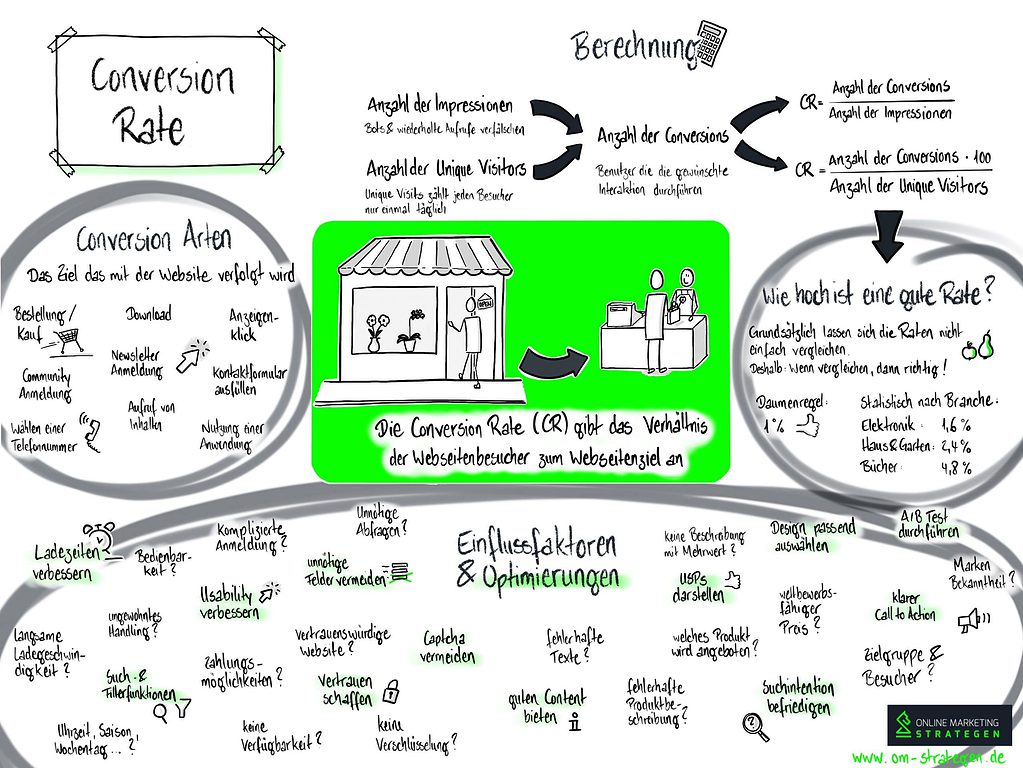 Conversion
Rate
Berechnung
Anzahl der Impressionen
Bots & wiederholte Aufrufe verfälschen
Anzahl der Unique Visitors
Unique Visits zählt jeden Besucher
nur einmal täglich
Anzahl der Conversions
Benutzer die die gewünschte
Interaktion durchführen
CR = Anzahl der Conversions
Anzahl der Impressionen
CR = Anzahl der Conversions · 100
Anzahl der Unique Visitors
Conversion Arten
Das Ziel das mit der Website verfolgt wird
Bestellung /
Kauf
Download
Anzeigen-
klick
Newsletter
Anmeldung
Community
Anmeldung
Kontaktformular
ausfüllen
Aufruf von
Inhalten
Wählen einer
Telefonnummer
Nutzung einer
Anwendung
OPEN
Die Conversion Rate (CR) gibt das Verhältnis
der Webseitenbesucher zum Webseitenziel an
Wie hoch ist eine gute Rate?
Grundsätzlich lassen sich die Raten nicht
einfach vergleichen.
Deshalb: Wenn vergleichen, dann richtig!
Daumenregel:
1%
Statistisch nach Branche:
Elektronik: 1,6 %
Haus & Garten: 2,4 %
Bücher: 4,8 %
Einflussfaktoren
& Optimierungen
Ladezeiten
verbessern
Bedienbar-
keit?
Komplizierte
Anmeldung?
Unnötige
Abfragen?
unnötige
Felder vermeiden
keine Beschreibung
mit Mehrwert?
Design passend
auswählen
A/B Test
durchführen
Marken
Bekanntheit?
Usability
verbessern
USPs
darstellen
ungewohntes
Handling?
wettbewerbs-
fähiger
Preis?
klarer
Call to Action
Langsame
Ladegeschwin-
digkeit?
Vertrauenswürdige
Website?
Captcha
vermeiden
fehlerhafte
Texte?
welches Produkt
wird angeboten?
Zielgruppe &
Besucher?
Such- &
Filterfunktionen
Zahlungs-
möglichkeiten?
Vertrauen
schaffen
guten Content
bieten
fehlerhafte
Produktbe-
schreibung?
Suchintention
befriedigen
Uhrzeit, Saison,
Wochentag...?
keine
Verfügbarkeit?
keine
Verschlüsselung?
ONLINE MARKETING
STRATEGEN
www.om-strategen.de